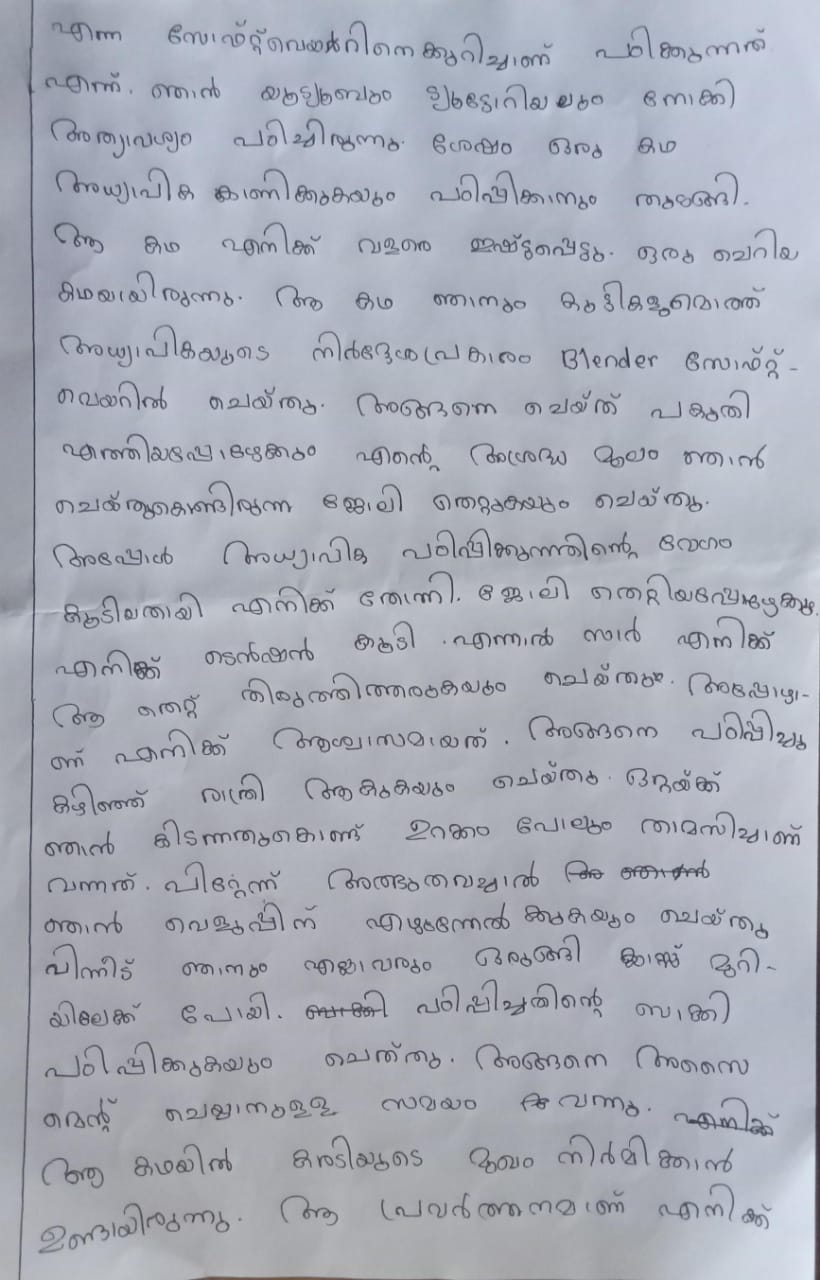 എന്ന സോഫ്റ്റ്‌വെയറിനെക്കുറിച്ചാണ് പഠിക്കുന്നത്
എന്ന്. ഞാൻ യൂട്യൂബും ട്യൂട്ടോറിയലും നോക്കി
അത്യാവശ്യം പഠിച്ചിരുന്നു. ശേഷം ഒരു കഥ
അധ്യാപിക കാണിക്കുകയും പഠിപ്പിക്കാനും തുടങ്ങി.
ആ കഥ എനിക്ക് വളരെ ഇഷ്ടപ്പെട്ടു. ഒരു ചെറിയ
കഥയായിരുന്നു. ആ കഥ ഞാനും കുട്ടികളുമൊത്ത്
അധ്യാപികയുടെ നിർദ്ദേശപ്രകാരം Blender സോഫ്റ്റ്-
വെയറിൽ ചെയ്തു. അങ്ങനെ ചെയ്ത് പകുതി
എത്തിയപ്പോഴേക്കും എന്റെ അശ്രദ്ധ മൂലം ഞാൻ
ചെയ്തുകൊണ്ടിരുന്ന ജോലി തെറ്റുകയും ചെയ്തു.
അപ്പോൾ അധ്യാപിക പഠിപ്പിക്കുന്നതിന്റെ വേഗം
കൂടിയതായി എനിക്ക് തോന്നി. ജോലി തെറ്റിയപ്പോഴേക്കും
എനിക്ക് ടെൻഷൻ കൂടി. എന്നാൽ സാർ എനിക്ക്
ആ തെറ്റ് തിരുത്തിത്തരുകയും ചെയ്തു. അപ്പോഴാ-
ണ് എനിക്ക് ആശ്വാസമായത്. അങ്ങനെ പഠിപ്പിച്ചു
കഴിഞ്ഞ് രാത്രി ആകുകയും ചെയ്തു. ഒറ്റയ്ക്ക്
ഞാൻ കിടന്നതുകൊണ്ട് ഉറക്കം പോലും താമസിച്ചാണ്
വന്നത്. പിറ്റേന്ന് അത്ഭുതവച്ചാൽ
ഞാൻ വെളുപ്പിന് എഴുന്നേൽക്കുകയും ചെയ്തു
പിന്നീട് ഞാനും എല്ലാവരും ഒരുങ്ങി ക്ലാസ്സ് മുറി-
യിലേക്ക് പോയി. പഠിപ്പിച്ചതിന്റെ ബാക്കി
പഠിപ്പിക്കുകയും ചെയ്തു. അങ്ങനെ അസൈ
മെന്റ് ചെയ്യാനുള്ള സമയം വന്നു. എനിക്ക്
ആ കഥയിൽ കരടിയുടെ മുഖം നിർമിക്കാൻ
ഉണ്ടായിരുന്നു. ആ പ്രവർത്തനമാണ് എനിക്ക്